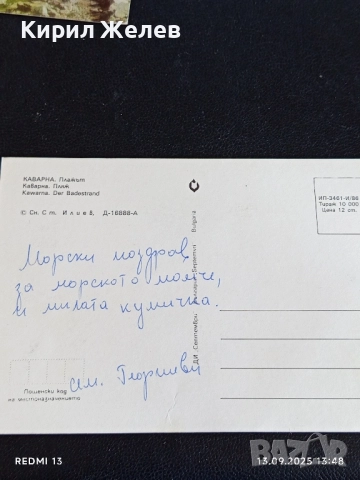 Кирил Желев
КАВАРНА. Плажът
Каварна. Пляж
Kawarna. Der Badestrand
© Сн. Ст. Илиев, Д-16888-А
ИП-3461-И/88
Тираж 10 000
Цена 12 ст.
Морски поздрав
за морското момче,
и милата кумичка.
сем. Георгиеви
Пощенски код
на местоназначението
ДИ „Септември“
Bulgaria
REDMI 13
13.09.2025 13:48
БАЗАР